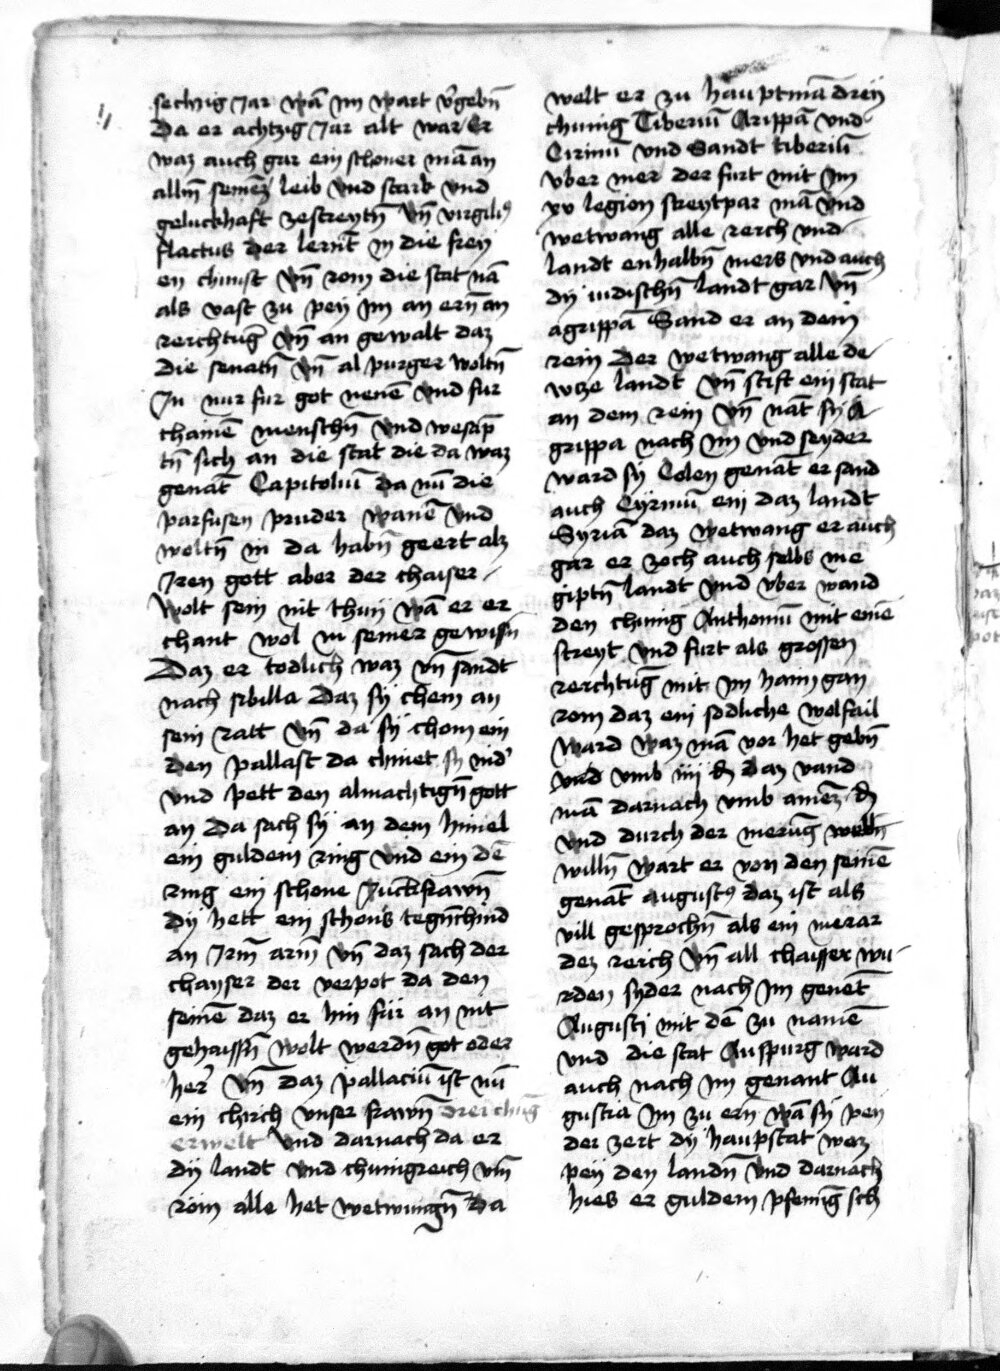 sechzig Jar wā jm wart v̄gebn̄
Da er achtzig Jar alt war Er
waz auch gar ein schoner man an
allm̄ seinez leib vnd starck vnd
geluckhaft zestreytn̄ vn̄ virgiliꝰ
flactus der lernt in die frey
en chunst vn̄ rom die stat nā
als vast zu pey jm an ern̄ an
reichtuḡ vn̄ an gewalt daz
die senatn̄ vn̄ al purger woltn̄
Jn nur fur got nenē vnd fur
chainē menschn̄ vnd
tn̄ sich an die stat die da waz
genāt Capitoliū da nū die
parfusen pruder wanē vnd
woltn̄ in da habn̄ geert alz
Jren gott aber der chaiser
wolt sein nit thun wā er er
chant wol in seiner gewissn̄
Daz er todlich waz vn̄ sandt
nach sibilla Daz sy chem an
sein ratt vn̄ da sy chom ein
den pallast da chniet sy nid'
vnd pett den almachtign̄ gott
an Da sach sy an dem himel
ein guldein ring vnd ein dē
ring ein schone Junckfrawn̄
dy hett ein schons degn̄chind
an Jrm̄ arm̄ vn̄ daz sach der
chayser der verpot da den
seinē daz er hin für an nit
gehaissn̄ wolt werdn̄ got oder
her' vn̄ daz pallaciū ist nū
ein chirch vnser frawn̄ drei chūg
erwelt vnd darnach da er
dy landt vnd chunigreich vm̄
rom alle het wetwungn̄ da
welt er zu hauptmā drey
chunig Tiberiū Arippā vnd
Cirinū vnd Sandt tiberiū
vber mer der furt mit jm
xv legion streytpar mā vnd
wetwang alle reich vnd
landt enhalbn̄ mers vnd auch
dy iudischn̄ landt gar vn̄
agrippā Sand er an dem
rein der wetwang alle de
wtze landt vn̄ stift ein stat
an dem rein vn̄ nāt sy A
grippa nach jm vnd seyder
ward sy Colen genāt er sand
auch Cyrinū ein daz landt
Syriā daz wetwang er auch
gar er zoch auch selbs in e
giptn̄ landt vnd vber wand
den chunig Anthoniū mit einē
streyt vnd furt als grossen
reichtuḡ mit jm haim gan
rom daz ein sodliche wolfail
ward waz mā vor het gebn̄
vmb iiij daz vand
mā darnach vmb ainez
vnd durch der merūg welln̄
willn̄ wart er von den seinē
genāt augustꝰ daz ist als
vill gesprochn̄ als ein merar
dez reich vn̄ all chaisser wu
rden syder nach jm genēt
Augusti mit dē zu namē
vnd die stat Auspurg ward
auch nach jm genant Au
gustia jm zu ern̄ wā sy pey
der zeit dy haupstat waz
pey den landn̄ vnd darnach
hies er guldein pfenīg sch